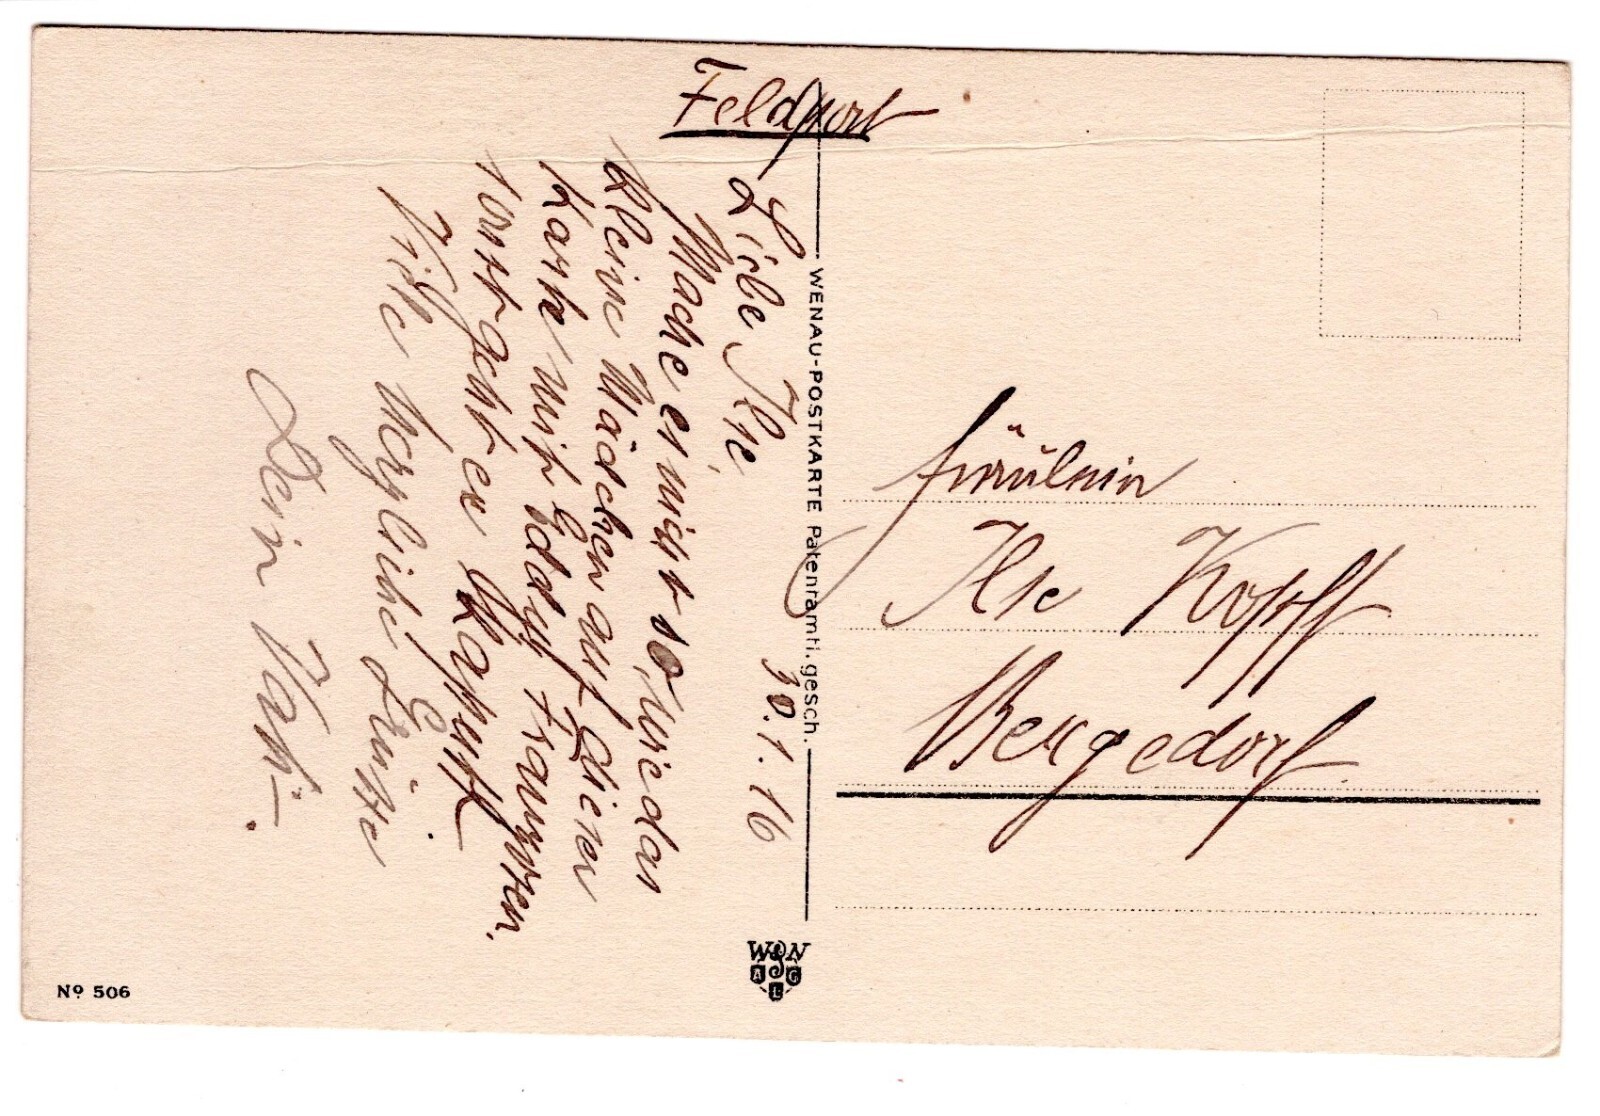 Feldpost
30.1.16
Liebe Ilse,
Mache es nicht so, wie das
kleine Mädchen auf dieser
Karte mit Eddys Franzosen.
sonst geht er kaputt.
Viele herzliche Grüße
Dein Vati.
WENAU-POSTKARTE Patentamtl. gesch.
Fräulein
Ilse Kopff
Bergedorf
WSN
A L G
Nº 506